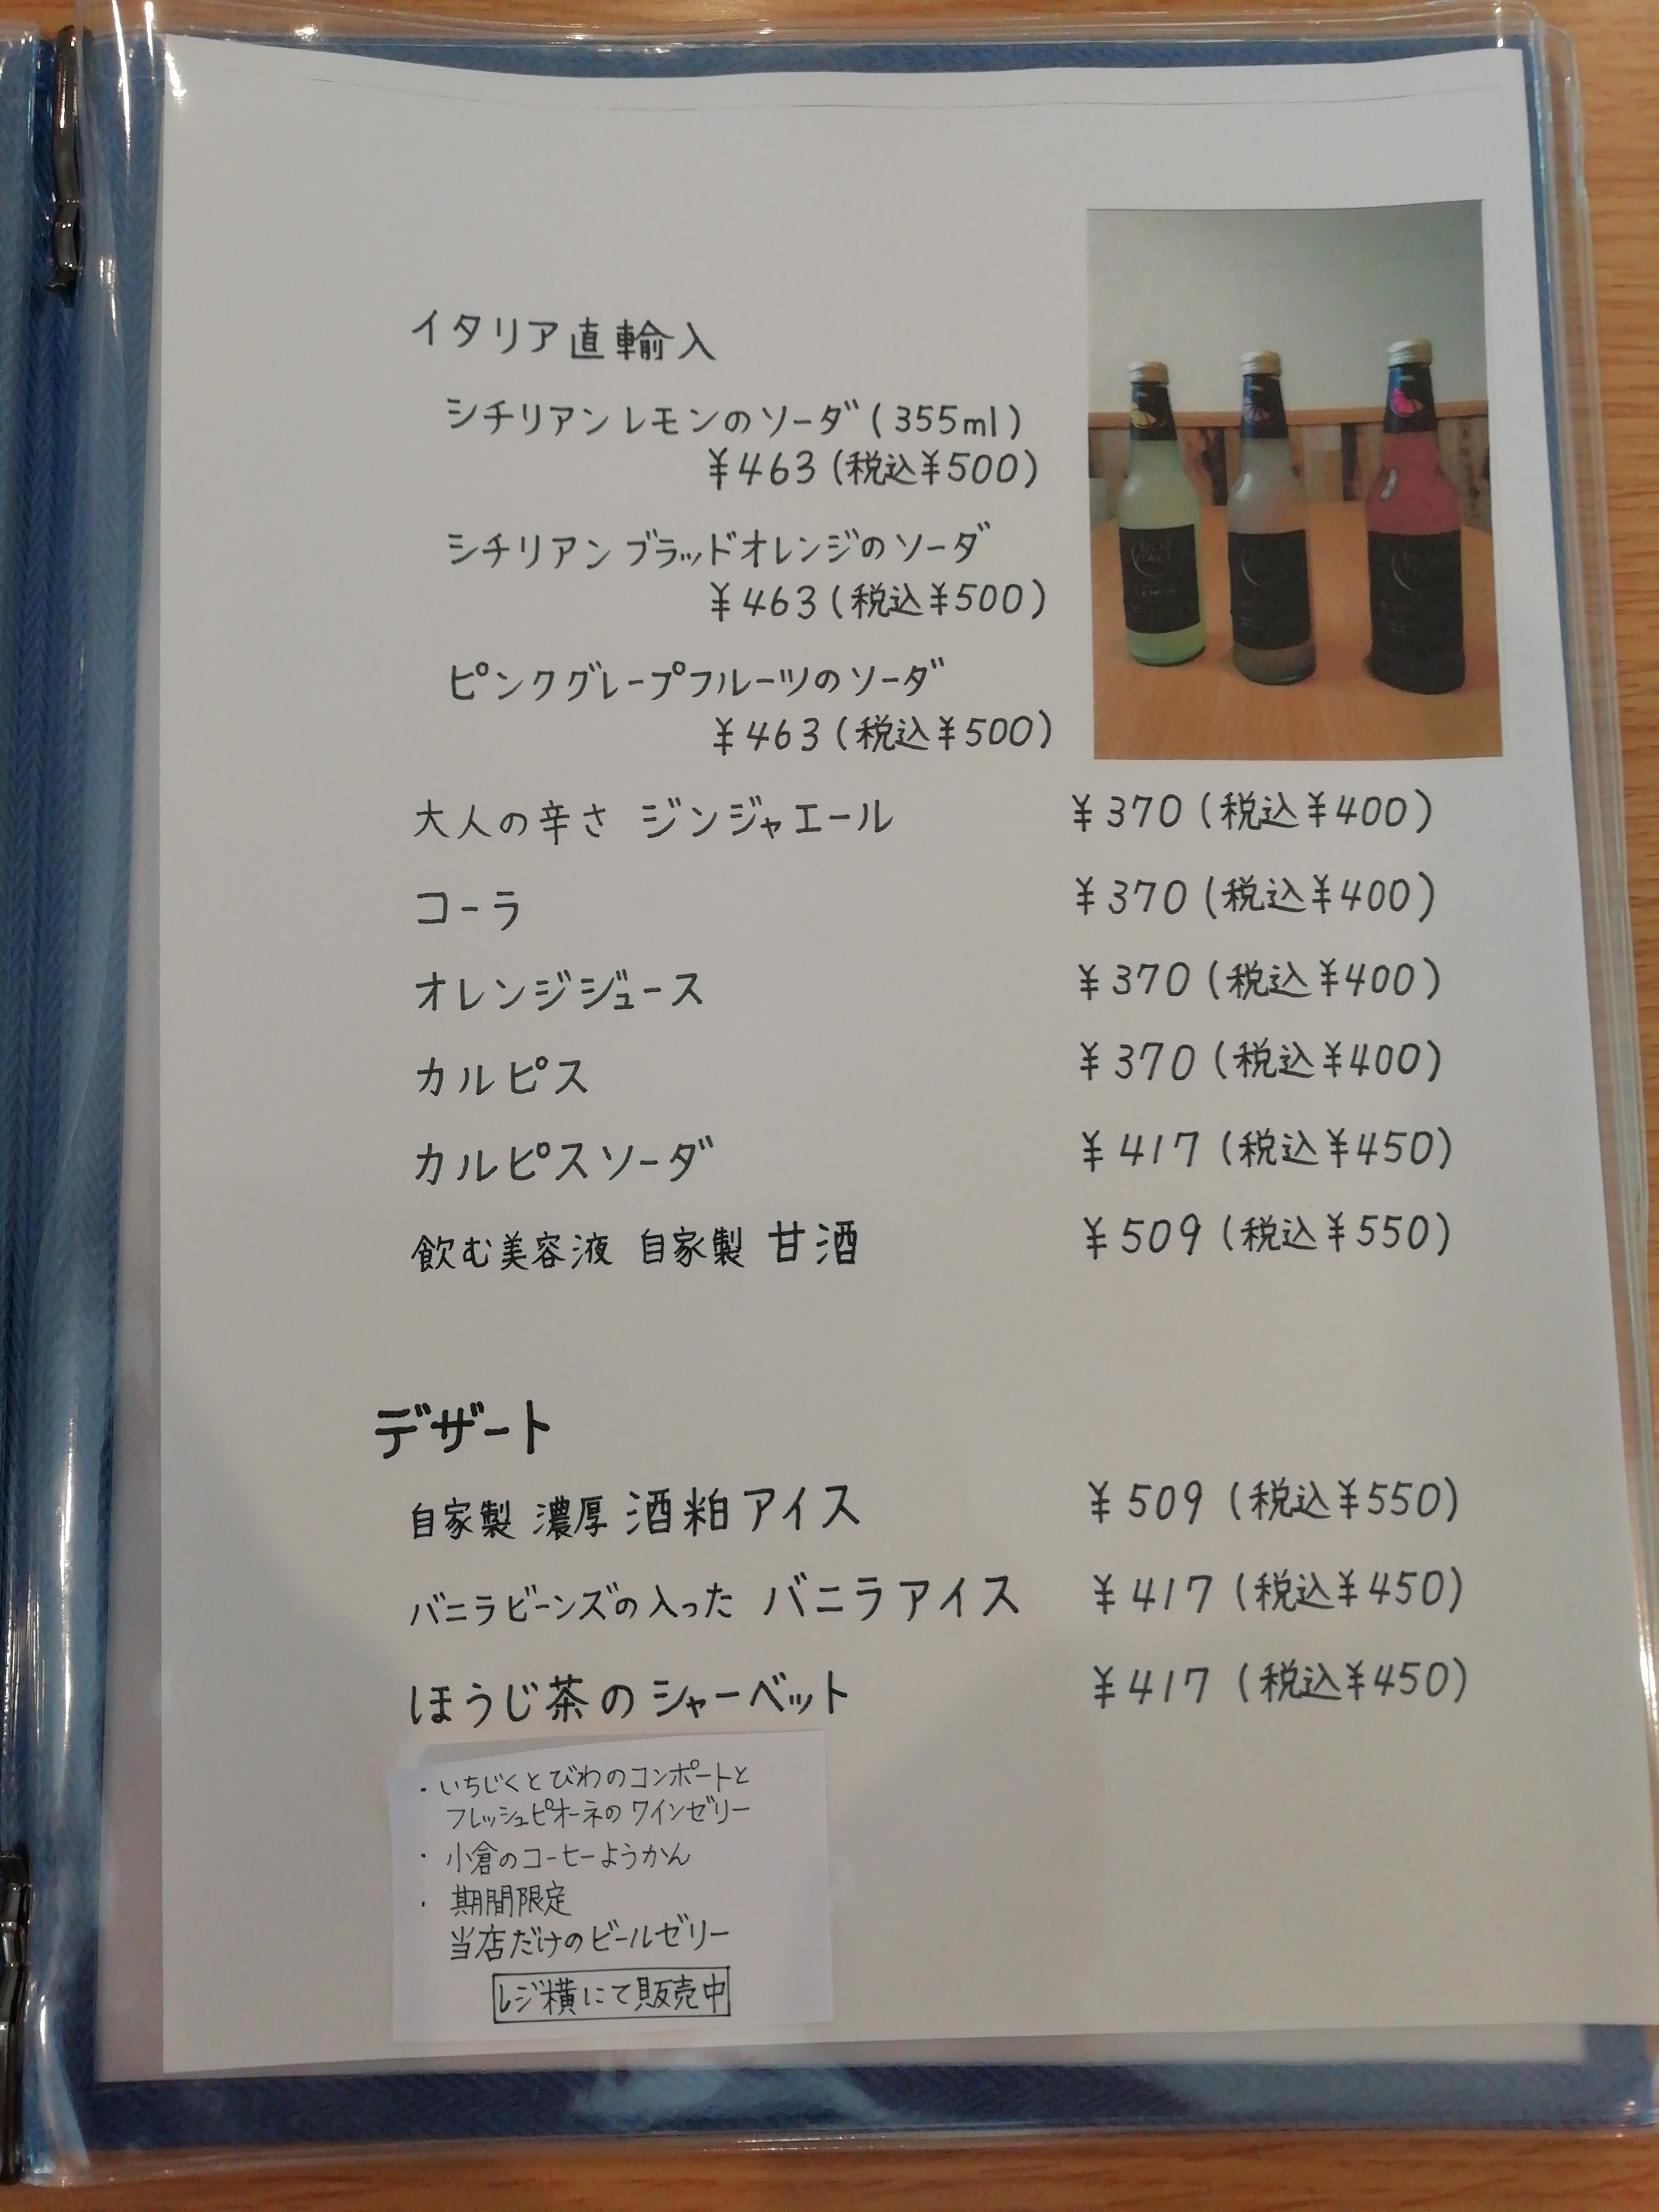 イタリア直輸入
シチリアンレモンのソーダ(355ml)
¥463(税込¥500)
シチリアンブラッドオレンジのソーダ
¥463(税込¥500)
ピンクグレープフルーツのソーダ
¥463(税込¥500)
大人の辛さ ジンジャエール ¥370(税込¥400)
コーラ ¥370(税込¥400)
オレンジジュース ¥370(税込¥400)
カルピス ¥370(税込¥400)
カルピスソーダ ¥417(税込¥450)
飲む美容液 自家製 甘酒 ¥509(税込¥550)
デザート
自家製 濃厚 酒粕アイス ¥509(税込¥550)
バニラビーンズの入った バニラアイス ¥417(税込¥450)
ほうじ茶のシャーベット ¥417(税込¥450)
・いちじくとびわのコンポートと
フレッシュピオーネのワインゼリー
・小倉のコーヒーようかん
・期間限定
当店だけのビールゼリー
レジ横にて販売中